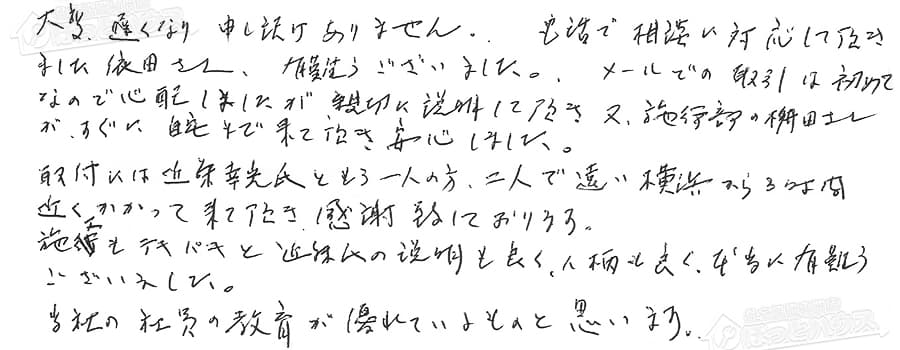 大変、遅くなり申し訳ありません。電話で相談に対応して頂き
ました依田さん、有難うございました。メールでの取引は初めて
なので心配しましたが親切に説明して頂き又、施行部の樹田さん
が、すぐに自宅まで来て頂き安心しました。
取付には近藤幸光氏ともう一人の方、二人で遠い横浜から3時間
近くかかって来て頂き、感謝致しております。
施工もテキパキと近藤氏の説明も良く、人柄も良く、本当に有難う
ございました。
当社の社員の教育が優れているものと思います。